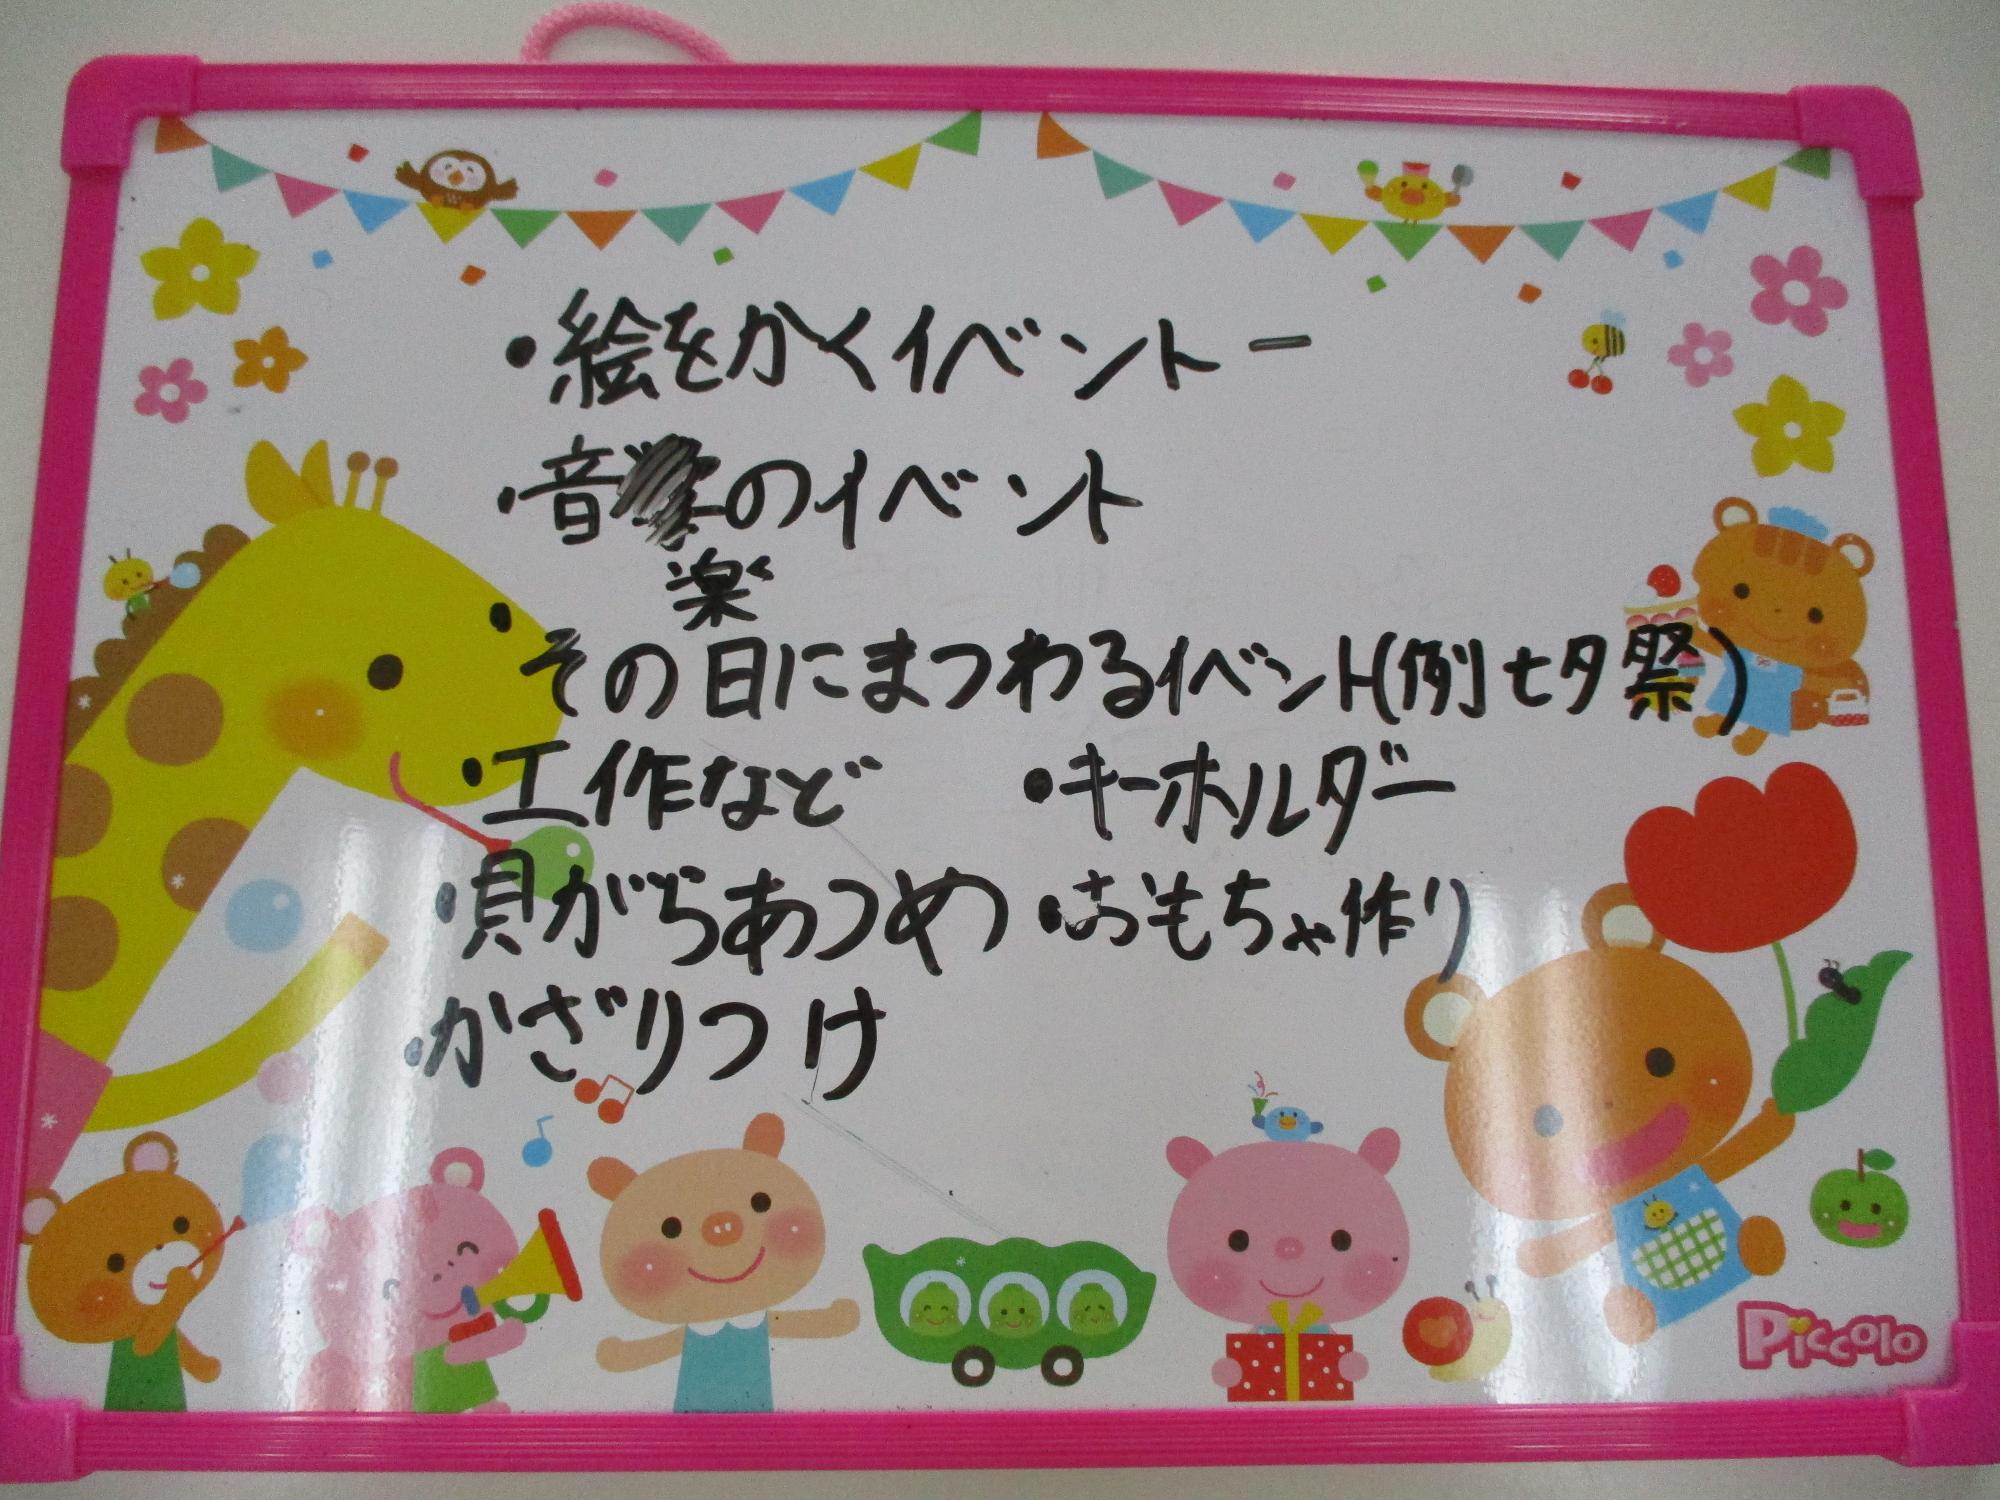 ・絵をかくイベントー
・音のイベント
楽
・その日にまつわるイベント(例七夕祭)
・工作など ・キーホルダー
・貝がらあつめ ・おもちゃ作り
・かざりつけ
Piccolo